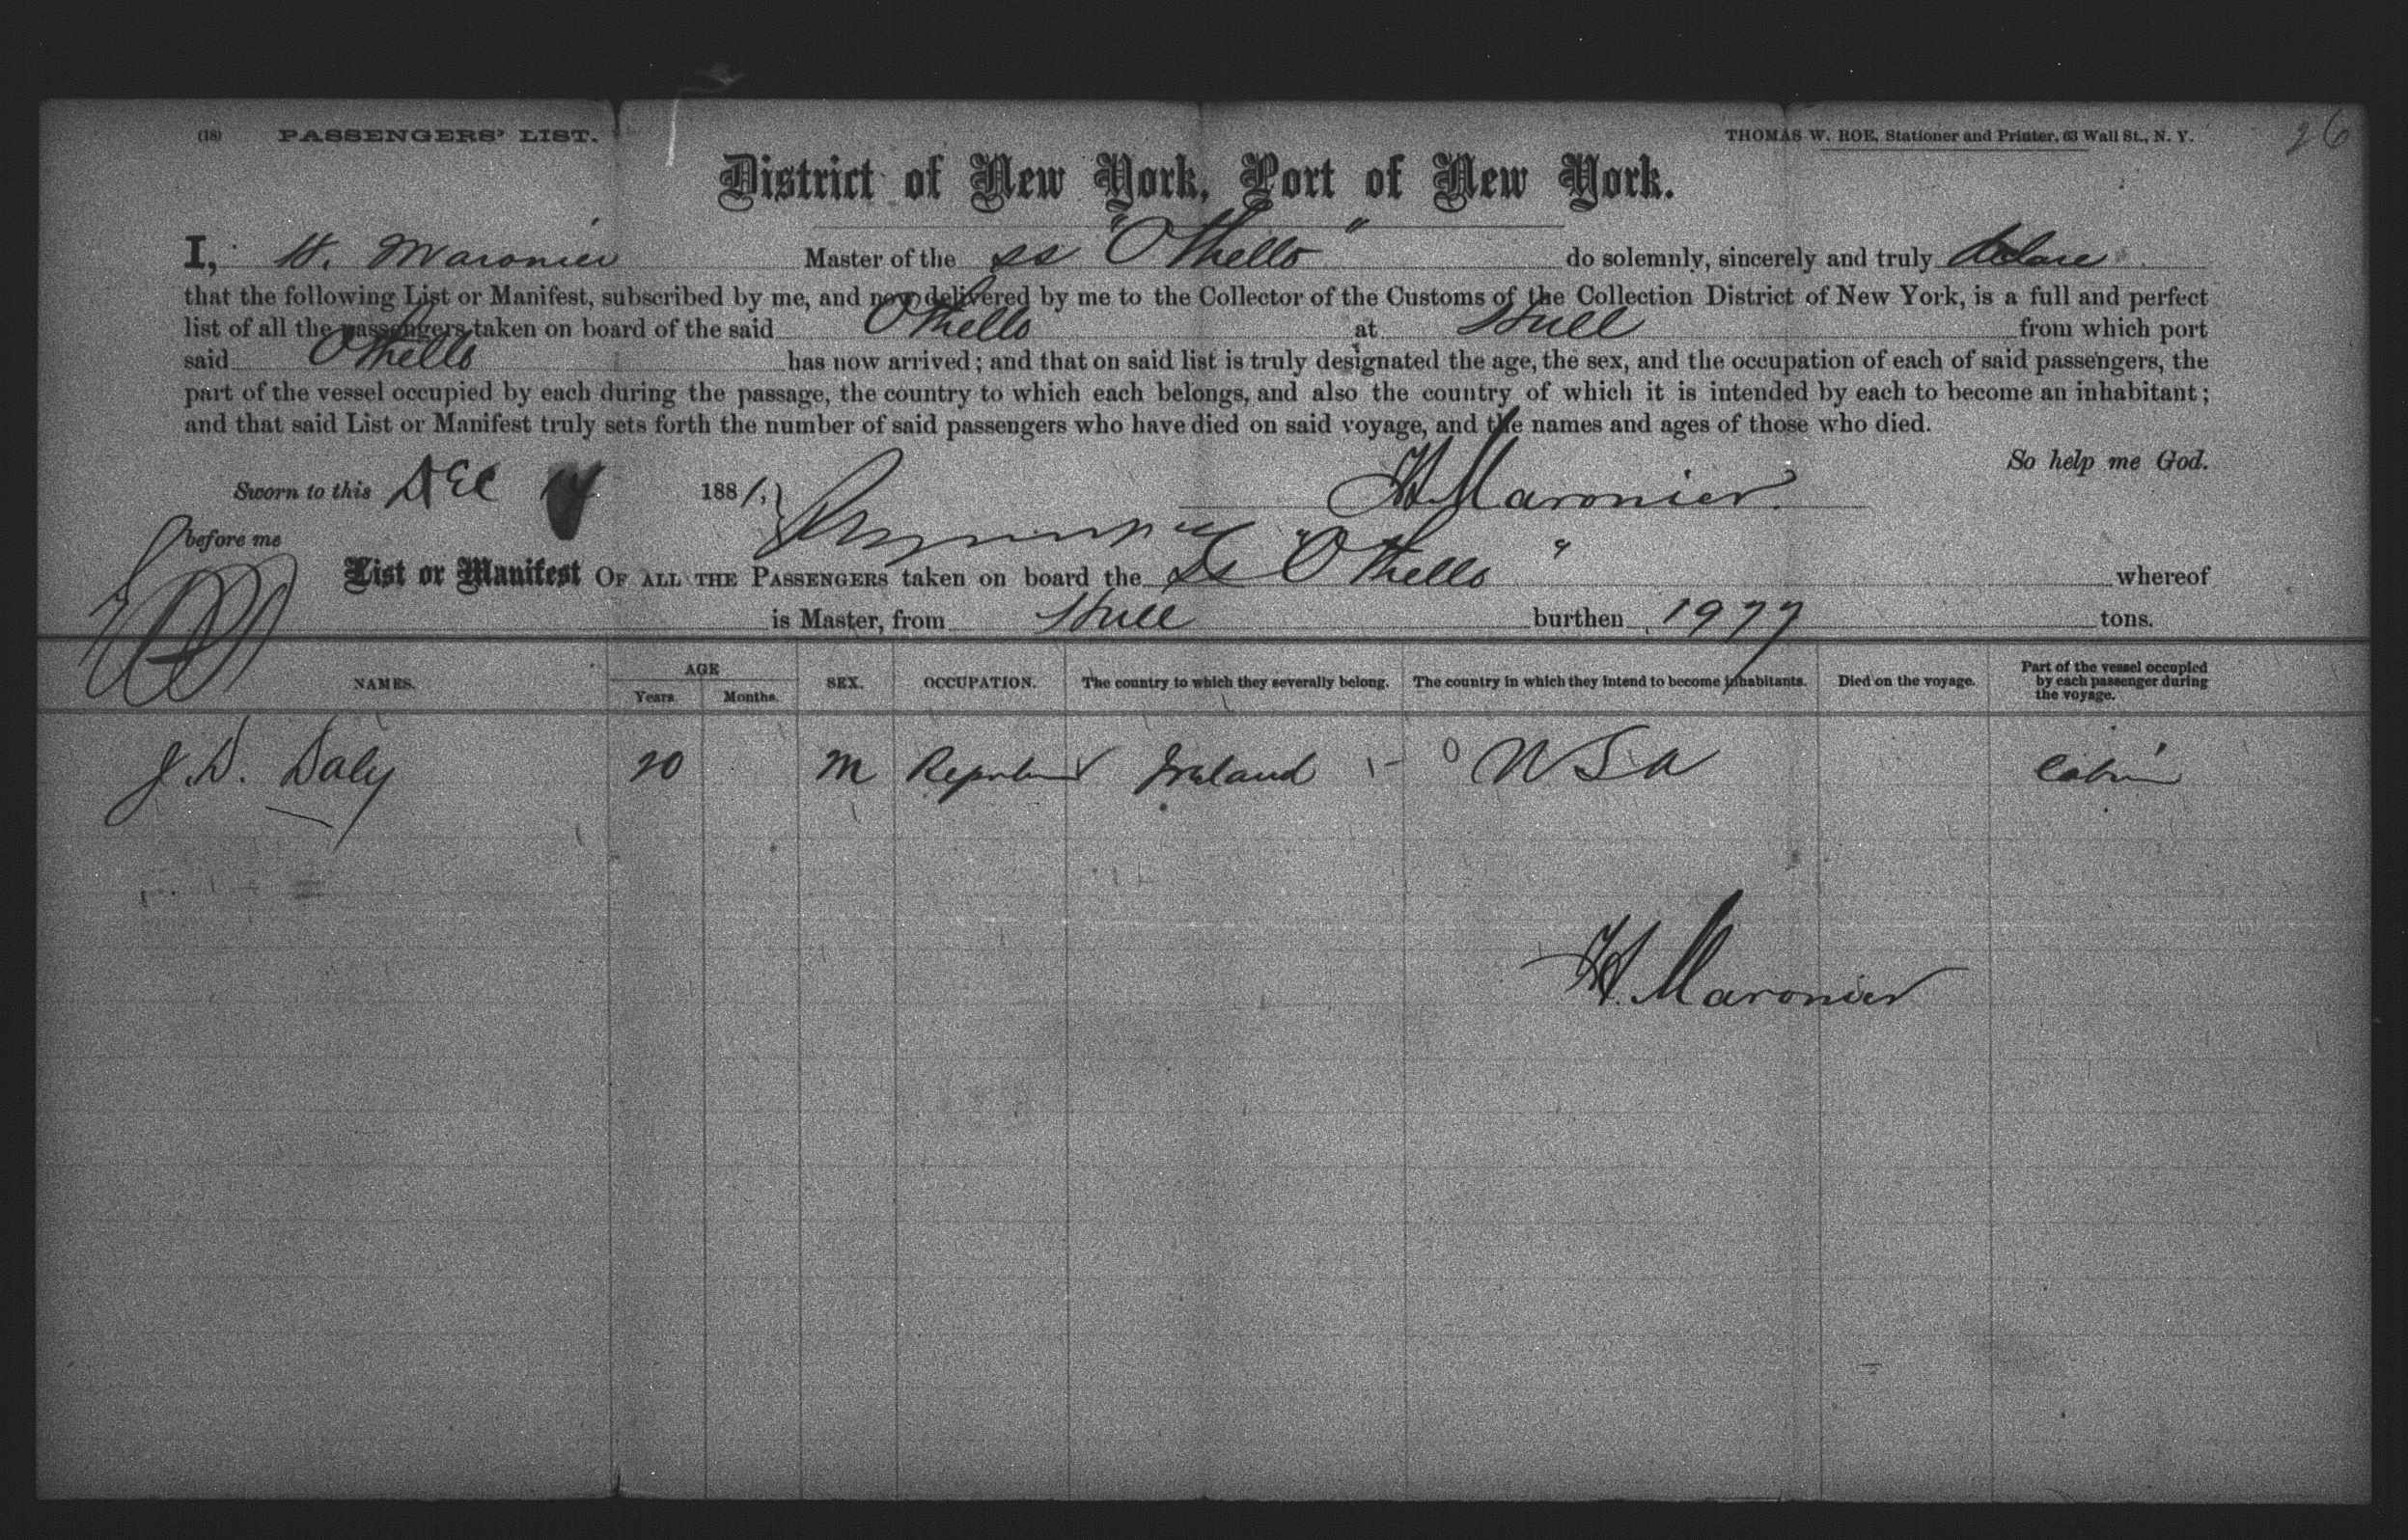 (18) PASSENGERS' LIST. THOMAS W. ROE, Stationer and Printer, 63 Wall St., N. Y. 26
District of New York, Port of New York.
I, H. Maronier Master of the SS "Othello" do solemnly, sincerely and truly declare
that the following List or Manifest, subscribed by me, and now delivered by me to the Collector of the Customs of the Collection District of New York, is a full and perfect
list of all the passengers taken on board of the said Othello at Hull from which port
said Othello has now arrived; and that on said list is truly designated the age, the sex, and the occupation of each of said passengers, the
part of the vessel occupied by each during the passage, the country to which each belongs, and also the country of which it is intended by each to become an inhabitant;
and that said List or Manifest truly sets forth the number of said passengers who have died on said voyage, and the names and ages of those who died.
So help me God.
Sworn to this Dec 14 1881. H. Maronier
before me
List or Manifest OF ALL THE PASSENGERS taken on board the SS "Othello" whereof
is Master, from Hull burthen 1977 tons.
NAMES. AGE Years. Months. SEX. OCCUPATION. The country to which they severally belong. The country in which they intend to become inhabitants. Died on the voyage. Part of the vessel occupied by each passenger during the voyage.
J. D. Daly 20 M Reporter Ireland USA Cabin
H. Maronier